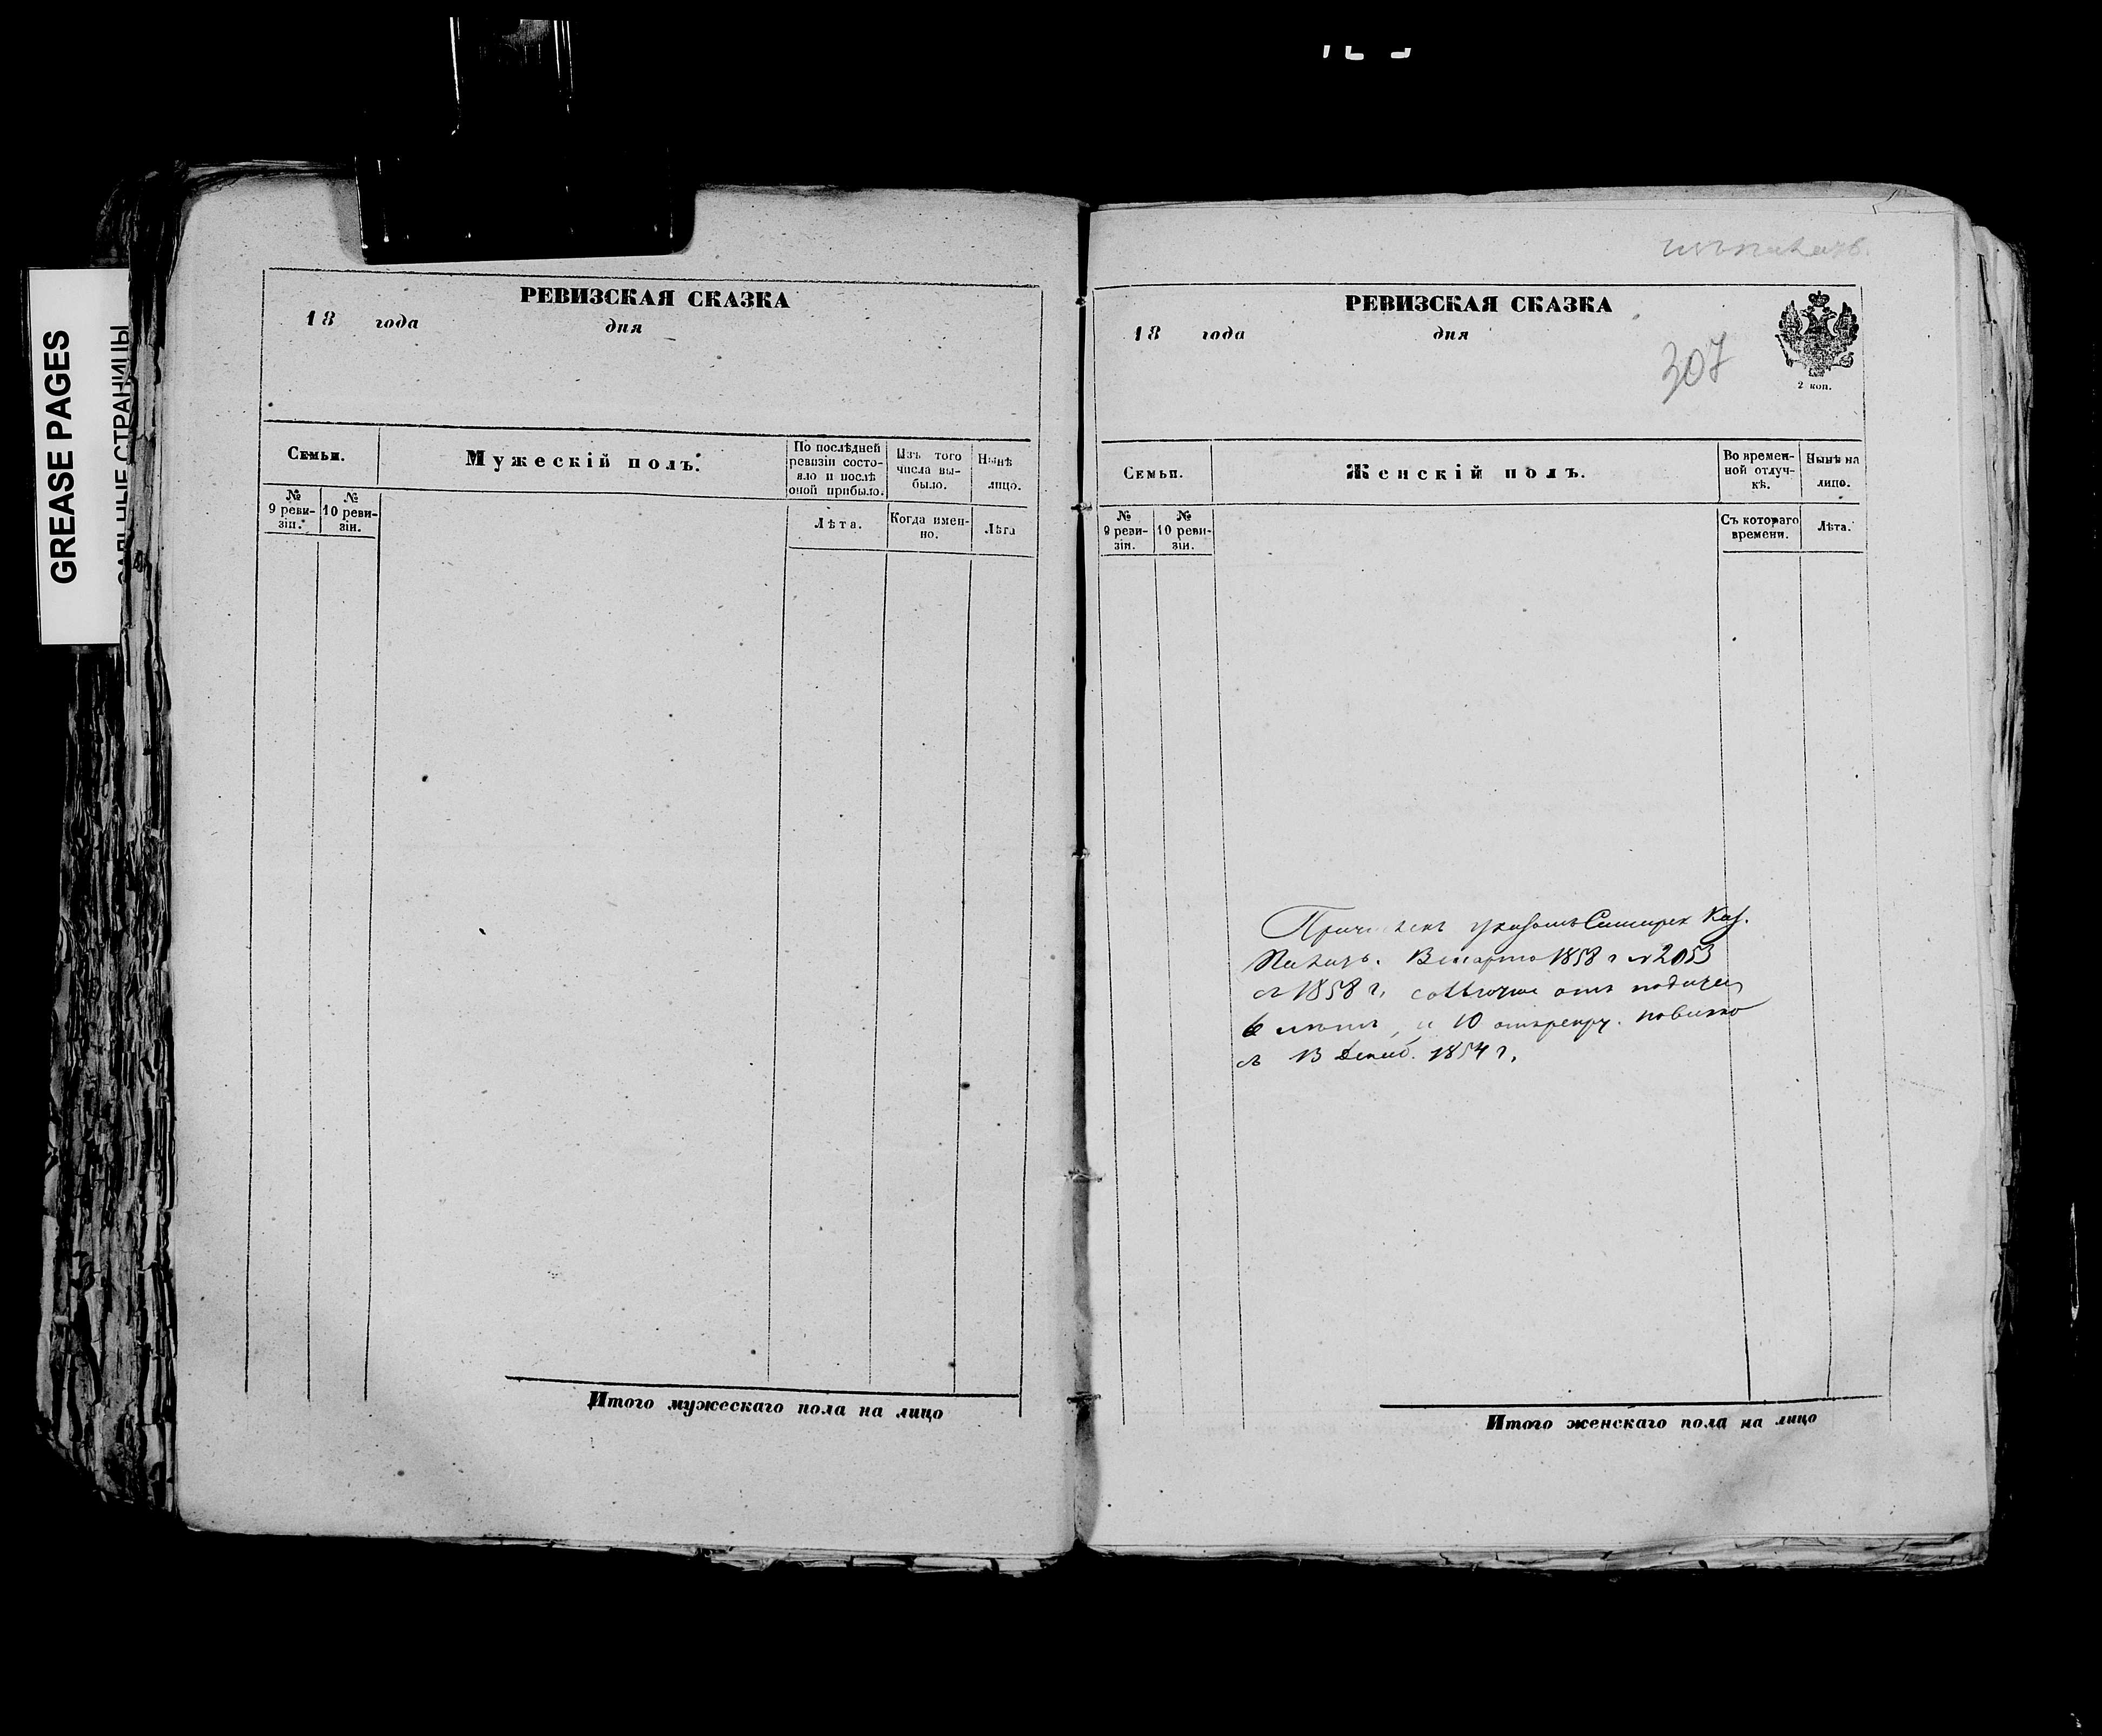 GREASE PAGES
САЛЬНЫЕ СТРАНИЦЫ
РЕВИЗСКАЯ СКАЗКА
18 года дня
Семьи.
Мужескій полъ.
По послѣдней ревизіи состояло и послѣ оной прибыло.
Изъ того числа выбыло.
Нынѣ лицо.
№ 9 ревизіи.
№ 10 ревизіи.
Лѣта.
Когда именно.
Лѣта
Итого мужескаго пола на лицо
РЕВИЗСКАЯ СКАЗКА
18 года дня
307
2 коп.
Семьи.
Женскій полъ.
Во временной отлучкѣ.
Нынѣ на лицо.
№ 9 ревизіи.
№ 10 ревизіи.
Съ котораго времени.
Лѣта.
Причисленъ указомъ Симирск Каз.
Палаты. 13 марта 1858 г № 2053
съ 1858 г. со льготою отъ податей
6 лѣтъ, и 10 отъ рекру. повинно
съ 13 Декаб. 1854 г.
Итого женскаго пола на лицо